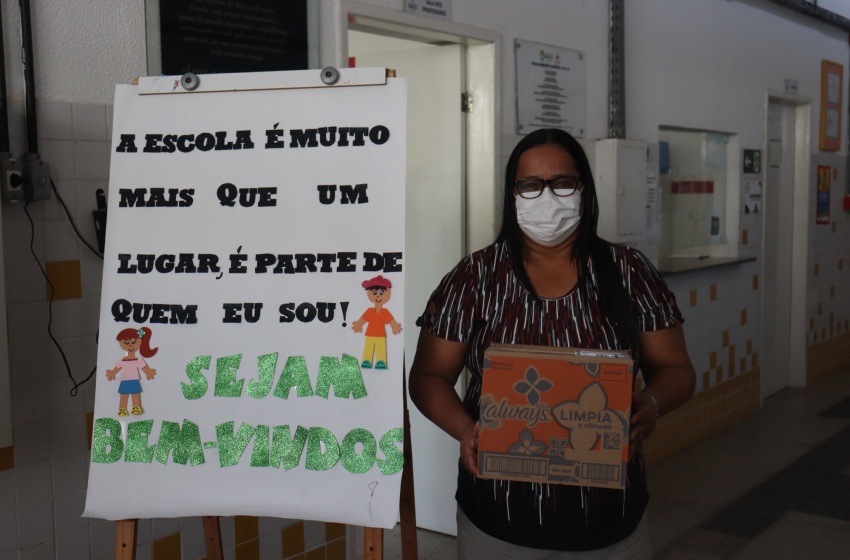 A ESCOLA É MUITO
MAIS QUE UM
LUGAR, É PARTE DE
QUEM EU SOU!
SEJAM
BEM-VINDOS
always
LIMPIA
y cómoda